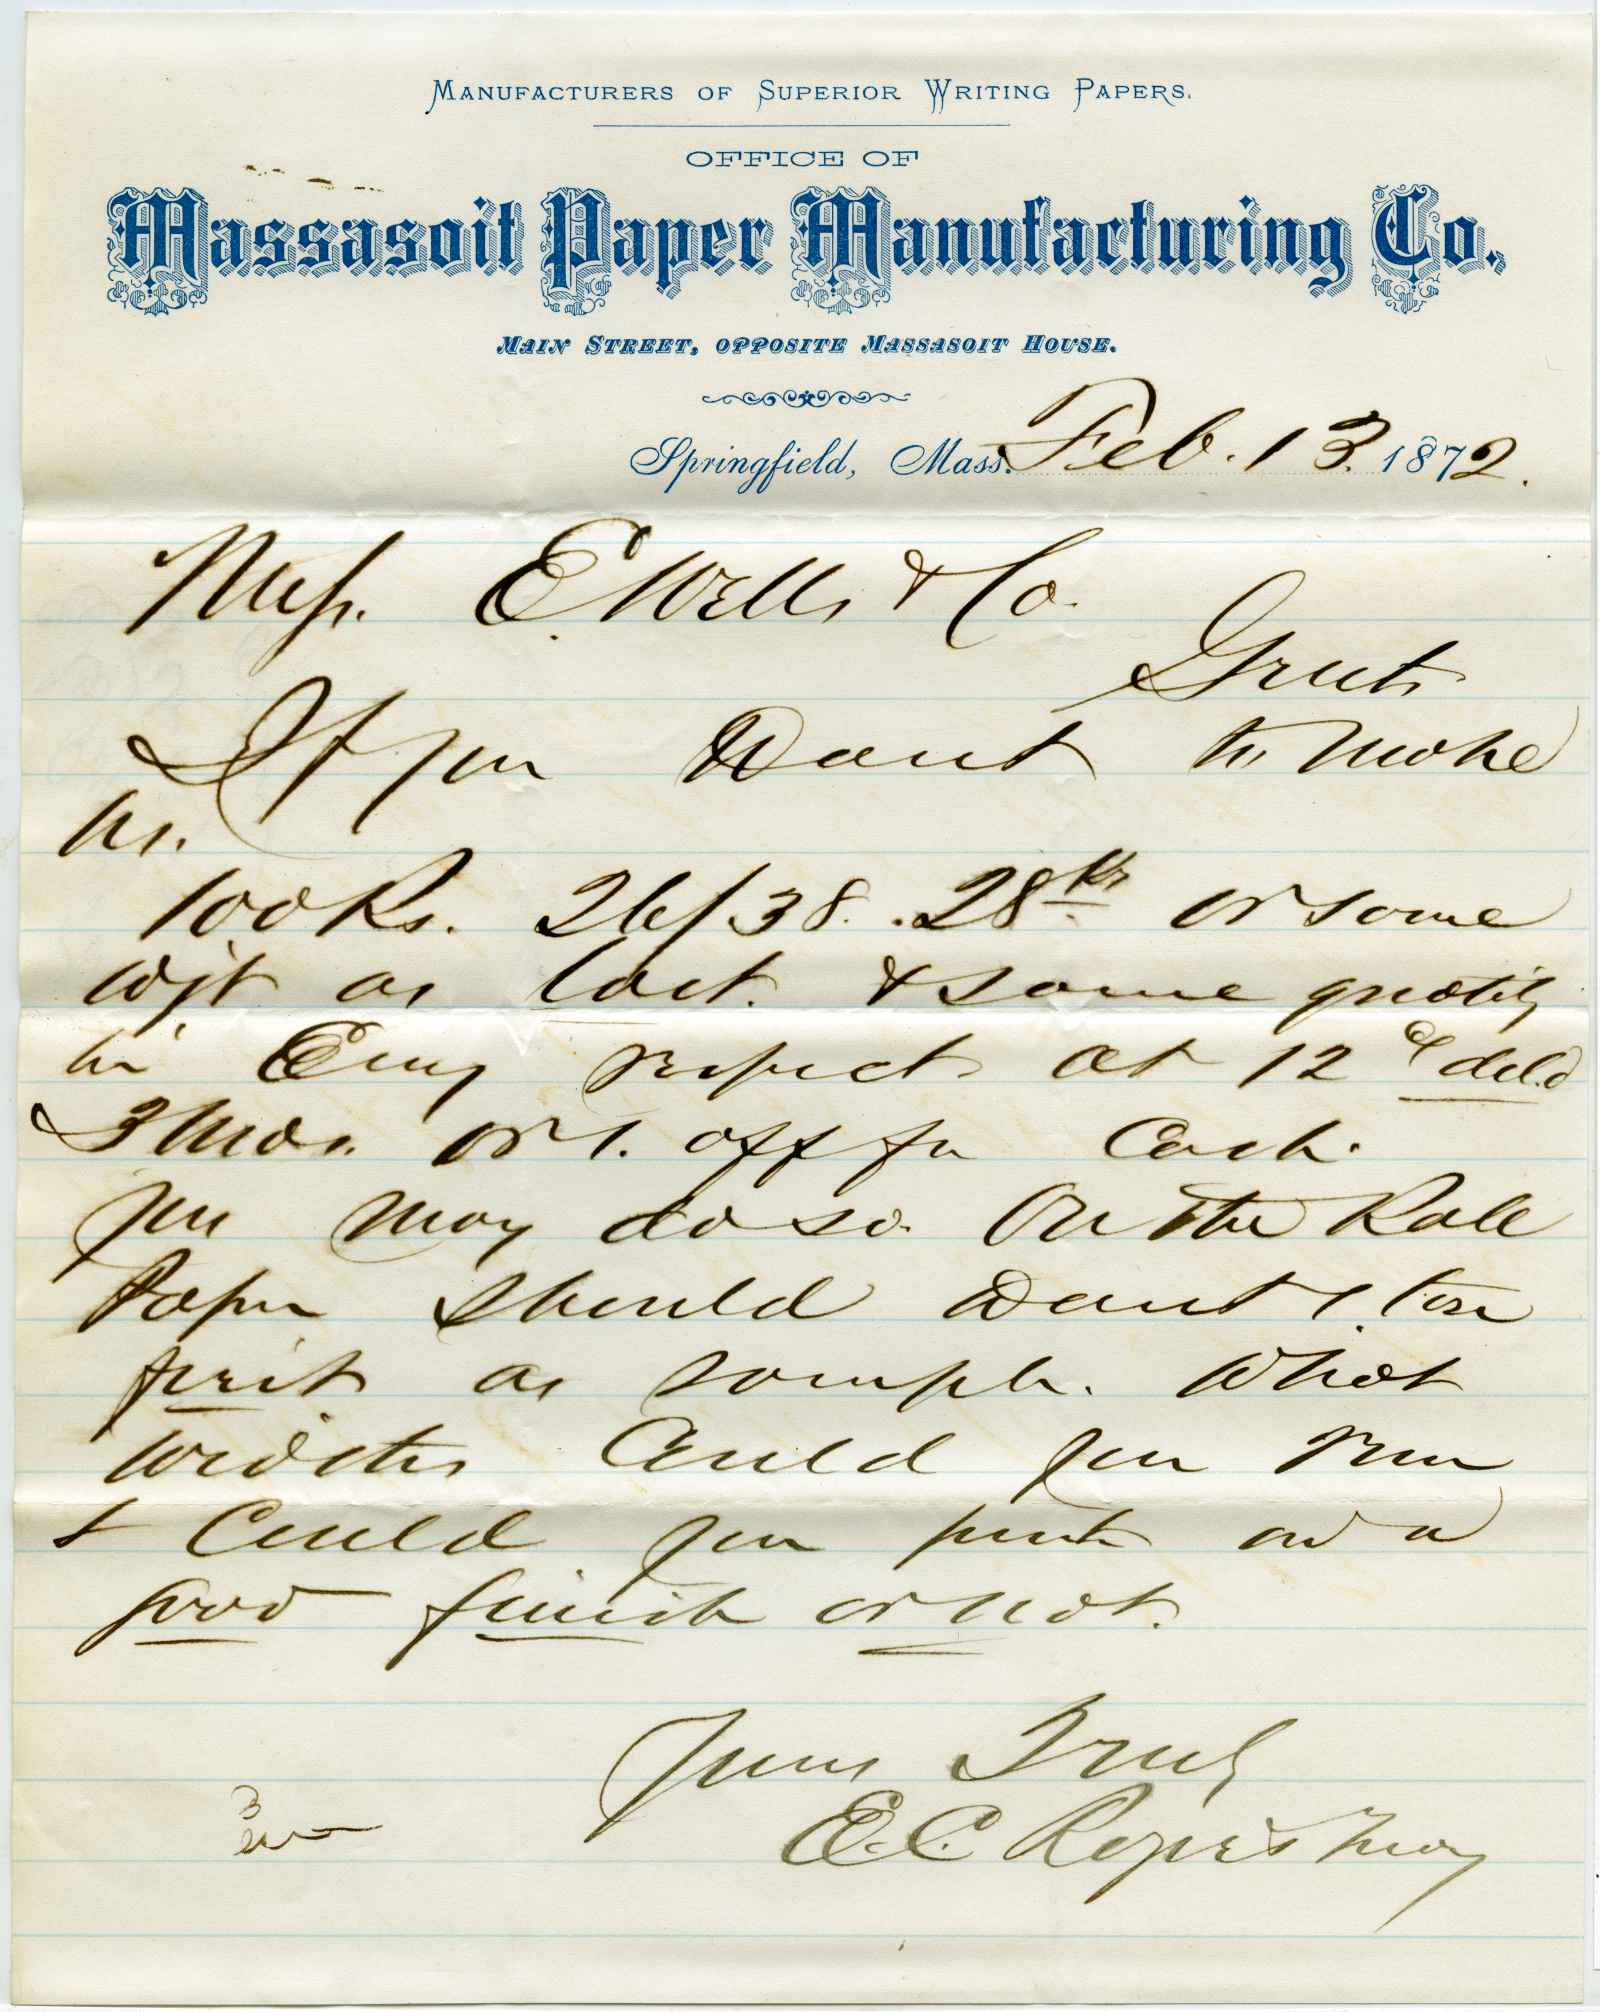 MANUFACTURERS OF SUPERIOR WRITING PAPERS.
OFFICE OF
Massasoit Paper Manufacturing Co.,
MAIN STREET, OPPOSITE MASSASOIT HOUSE.
Springfield, Mass. Feb. 13. 1872.
Mess. E. Wells & Co.
Gents
If you Want to Make
us.
100 Rs. 26/38. 28 lbs or same
wgt as last. & same quality
in Every respect at 12 deld
3 Mos. or 1. off for Cash.
you may do so. On the Role
Paper should want 1. ton
first as sample. What
widths Could you run
& Could you put on a
good finish or not.
Yours Truly
E. C. Rogers